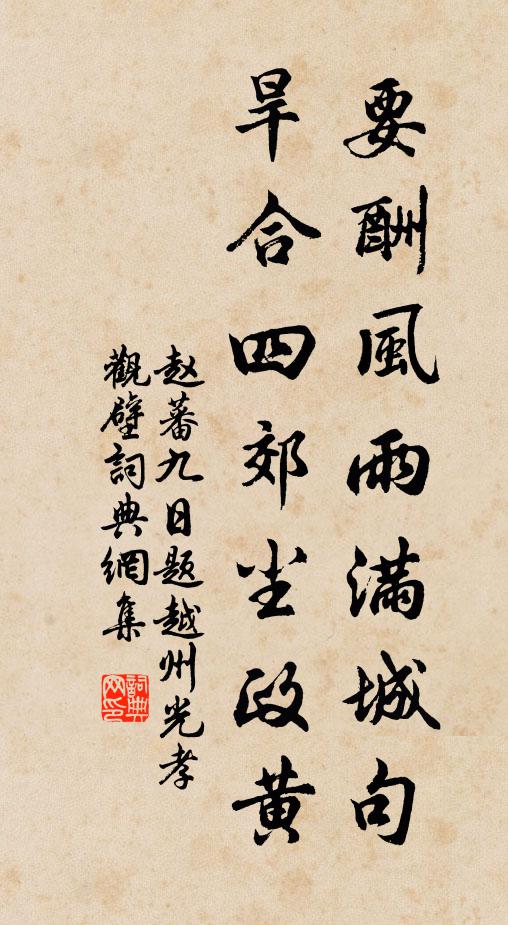 要酬風雨滿城句
旱合四郊尘政黄
赵蕃九日题越州光孝
觀壁詞典網集
詞典
网印